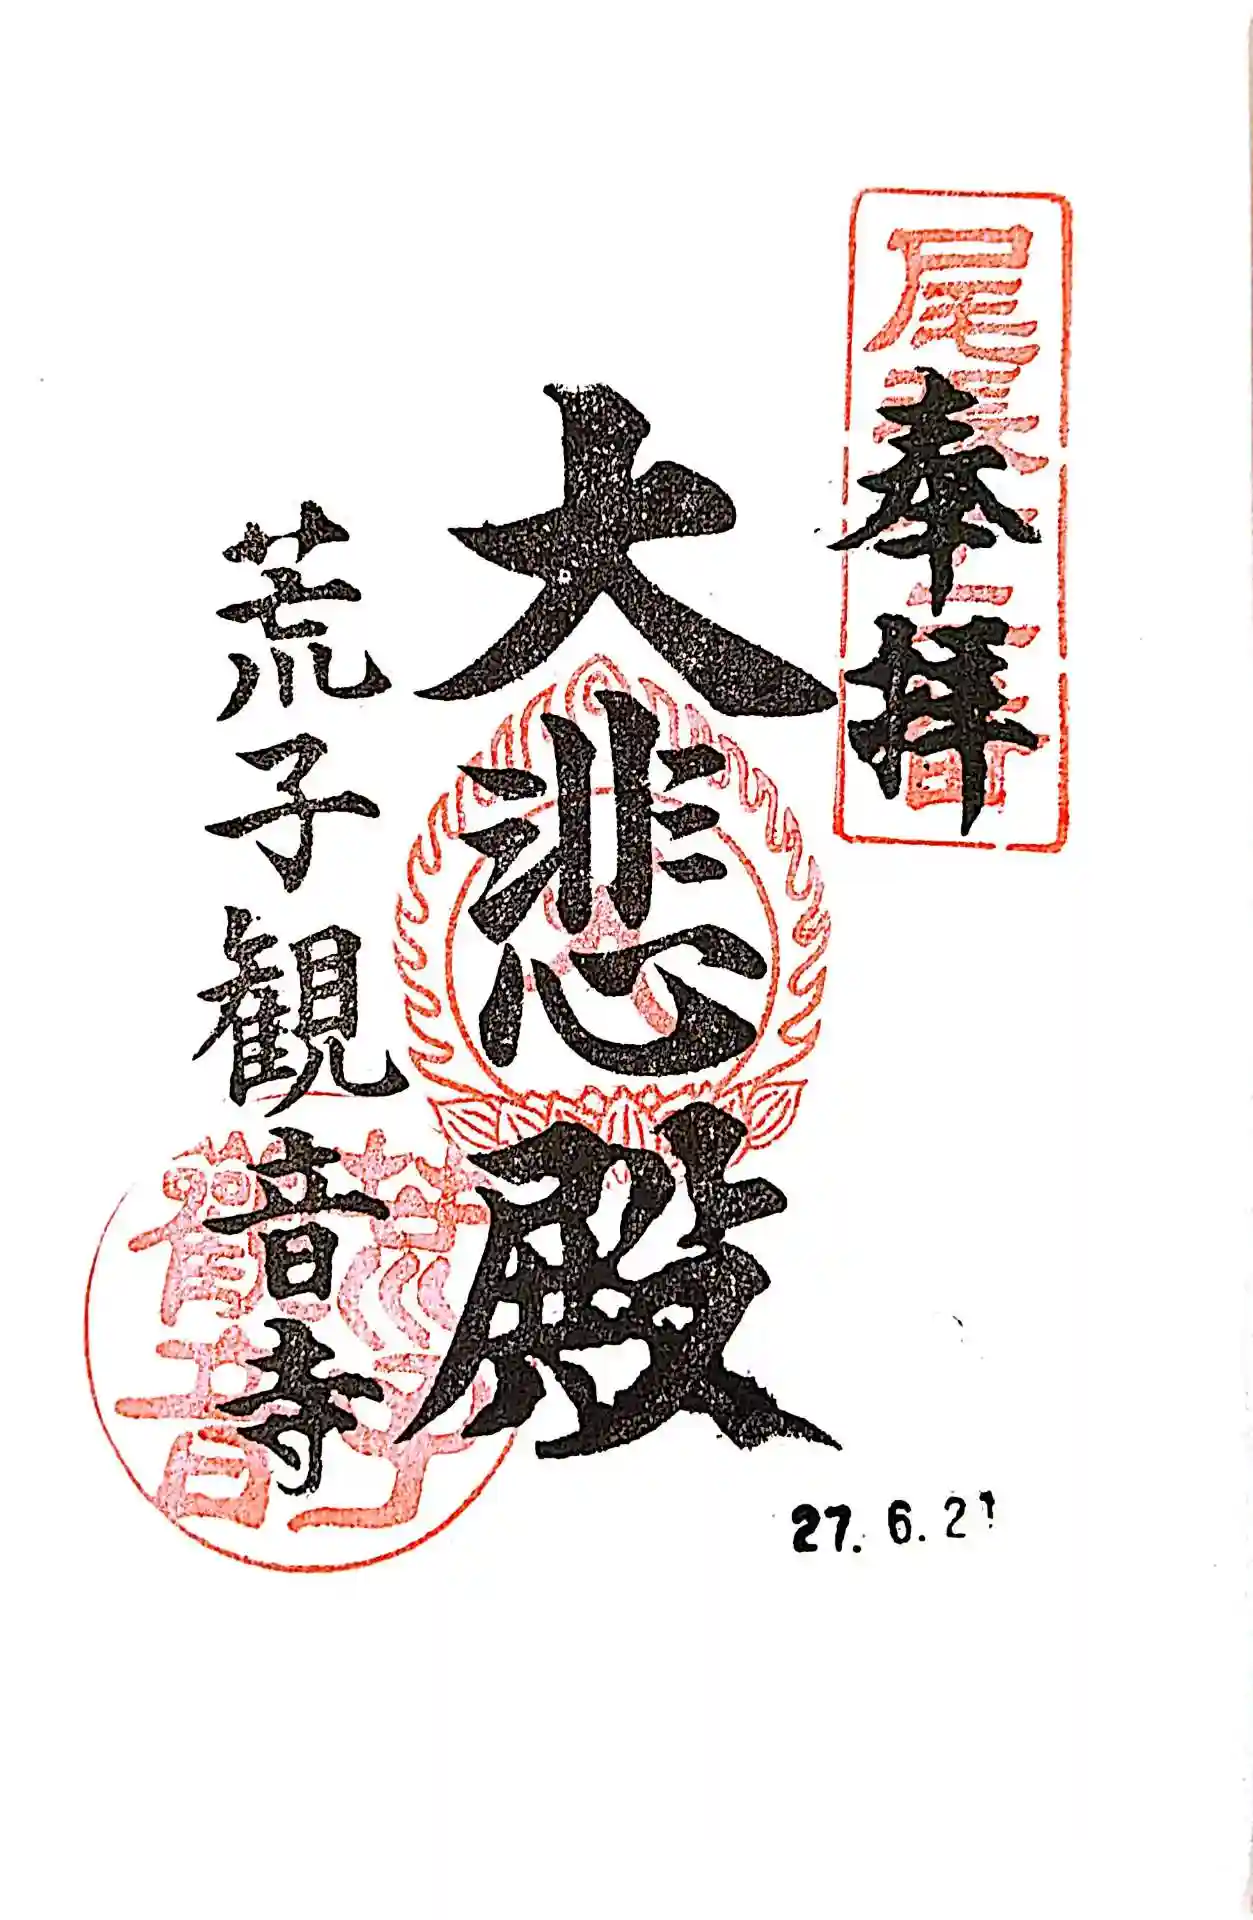 奉拝
尾張四観音
大悲殿
荒子観音寺
荒子
観音
27. 6. 21